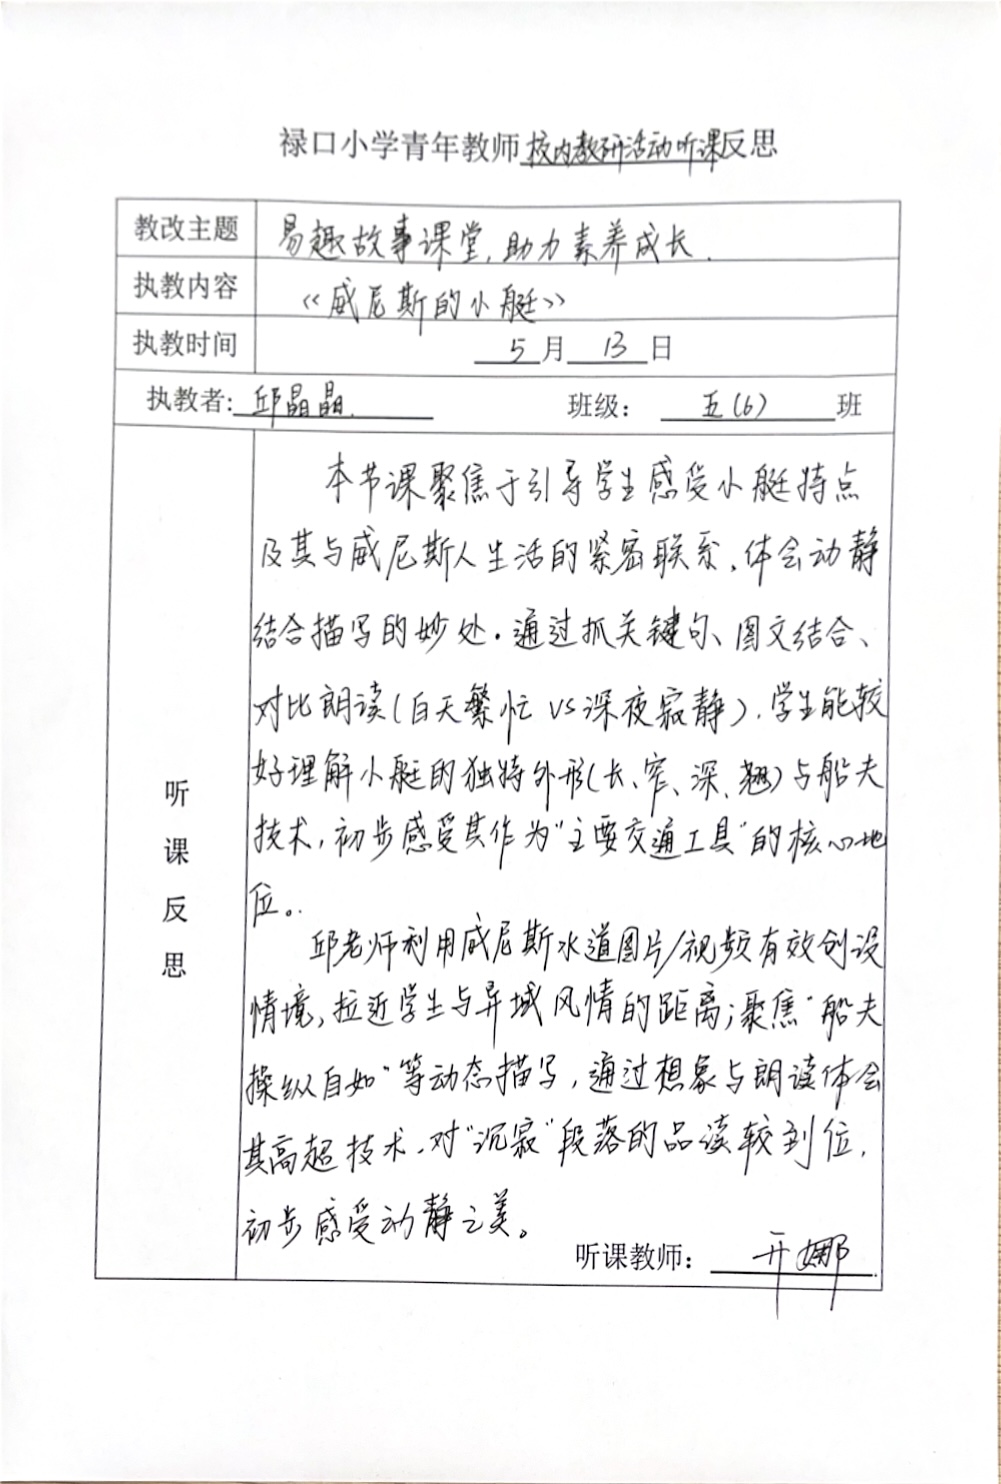 禄口小学青年教师校内教研活动听课反思
教改主题 易趣故事课堂,助力素养成长.
执教内容 《威尼斯的小艇》
执教时间 5月13日
执教者:邱晶晶. 班级: 五(6) 班
听课反思
本节课聚焦于引导学生感受小艇特点
及其与威尼斯人生活的紧密联系,体会动静
结合描写的妙处。通过抓关键句、图文结合、
对比朗读(白天繁忙 VS 深夜寂静),学生能较
好理解小艇的独特外形(长、窄、深、翘)与船夫
技术,初步感受其作为"主要交通工具"的核心地
位。
邱老师利用威尼斯水道图片/视频有效创设
情境,拉近学生与异域风情的距离;聚焦"船夫
操纵自如"等动态描写,通过想象与朗读体会
其高超技术,对"沉寂"段落的品读较到位,
初步感受动静之美。
听课教师: 亓娜